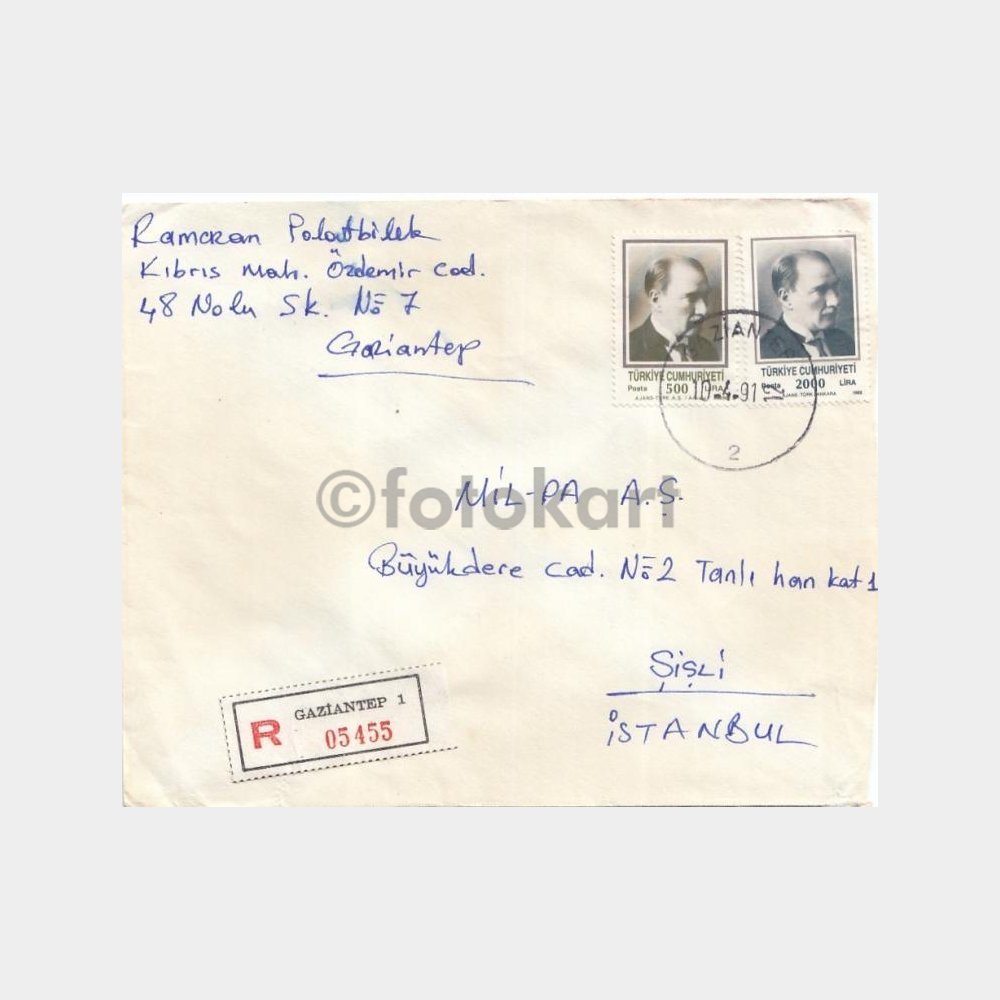 Ramazan Polatbilek
Kıbrıs Mah. Özdemir Cad.
48 Nolu Sk. No 7
Gaziantep
TÜRKİYE CUMHURİYETİ
Posta 500 LİRA
AJANS-TÜRK A.Ş.
TÜRKİYE CUMHURİYETİ
Posta 2000 LİRA
AJANS-TÜRK ANKARA
ZİAN
10-4-91
2
©fotokart
MİL-PA A.Ş.
Büyükdere cad. No 2 Tanlı han kat 1
ŞİŞLİ
İSTANBUL
GAZİANTEP 1
R 05455